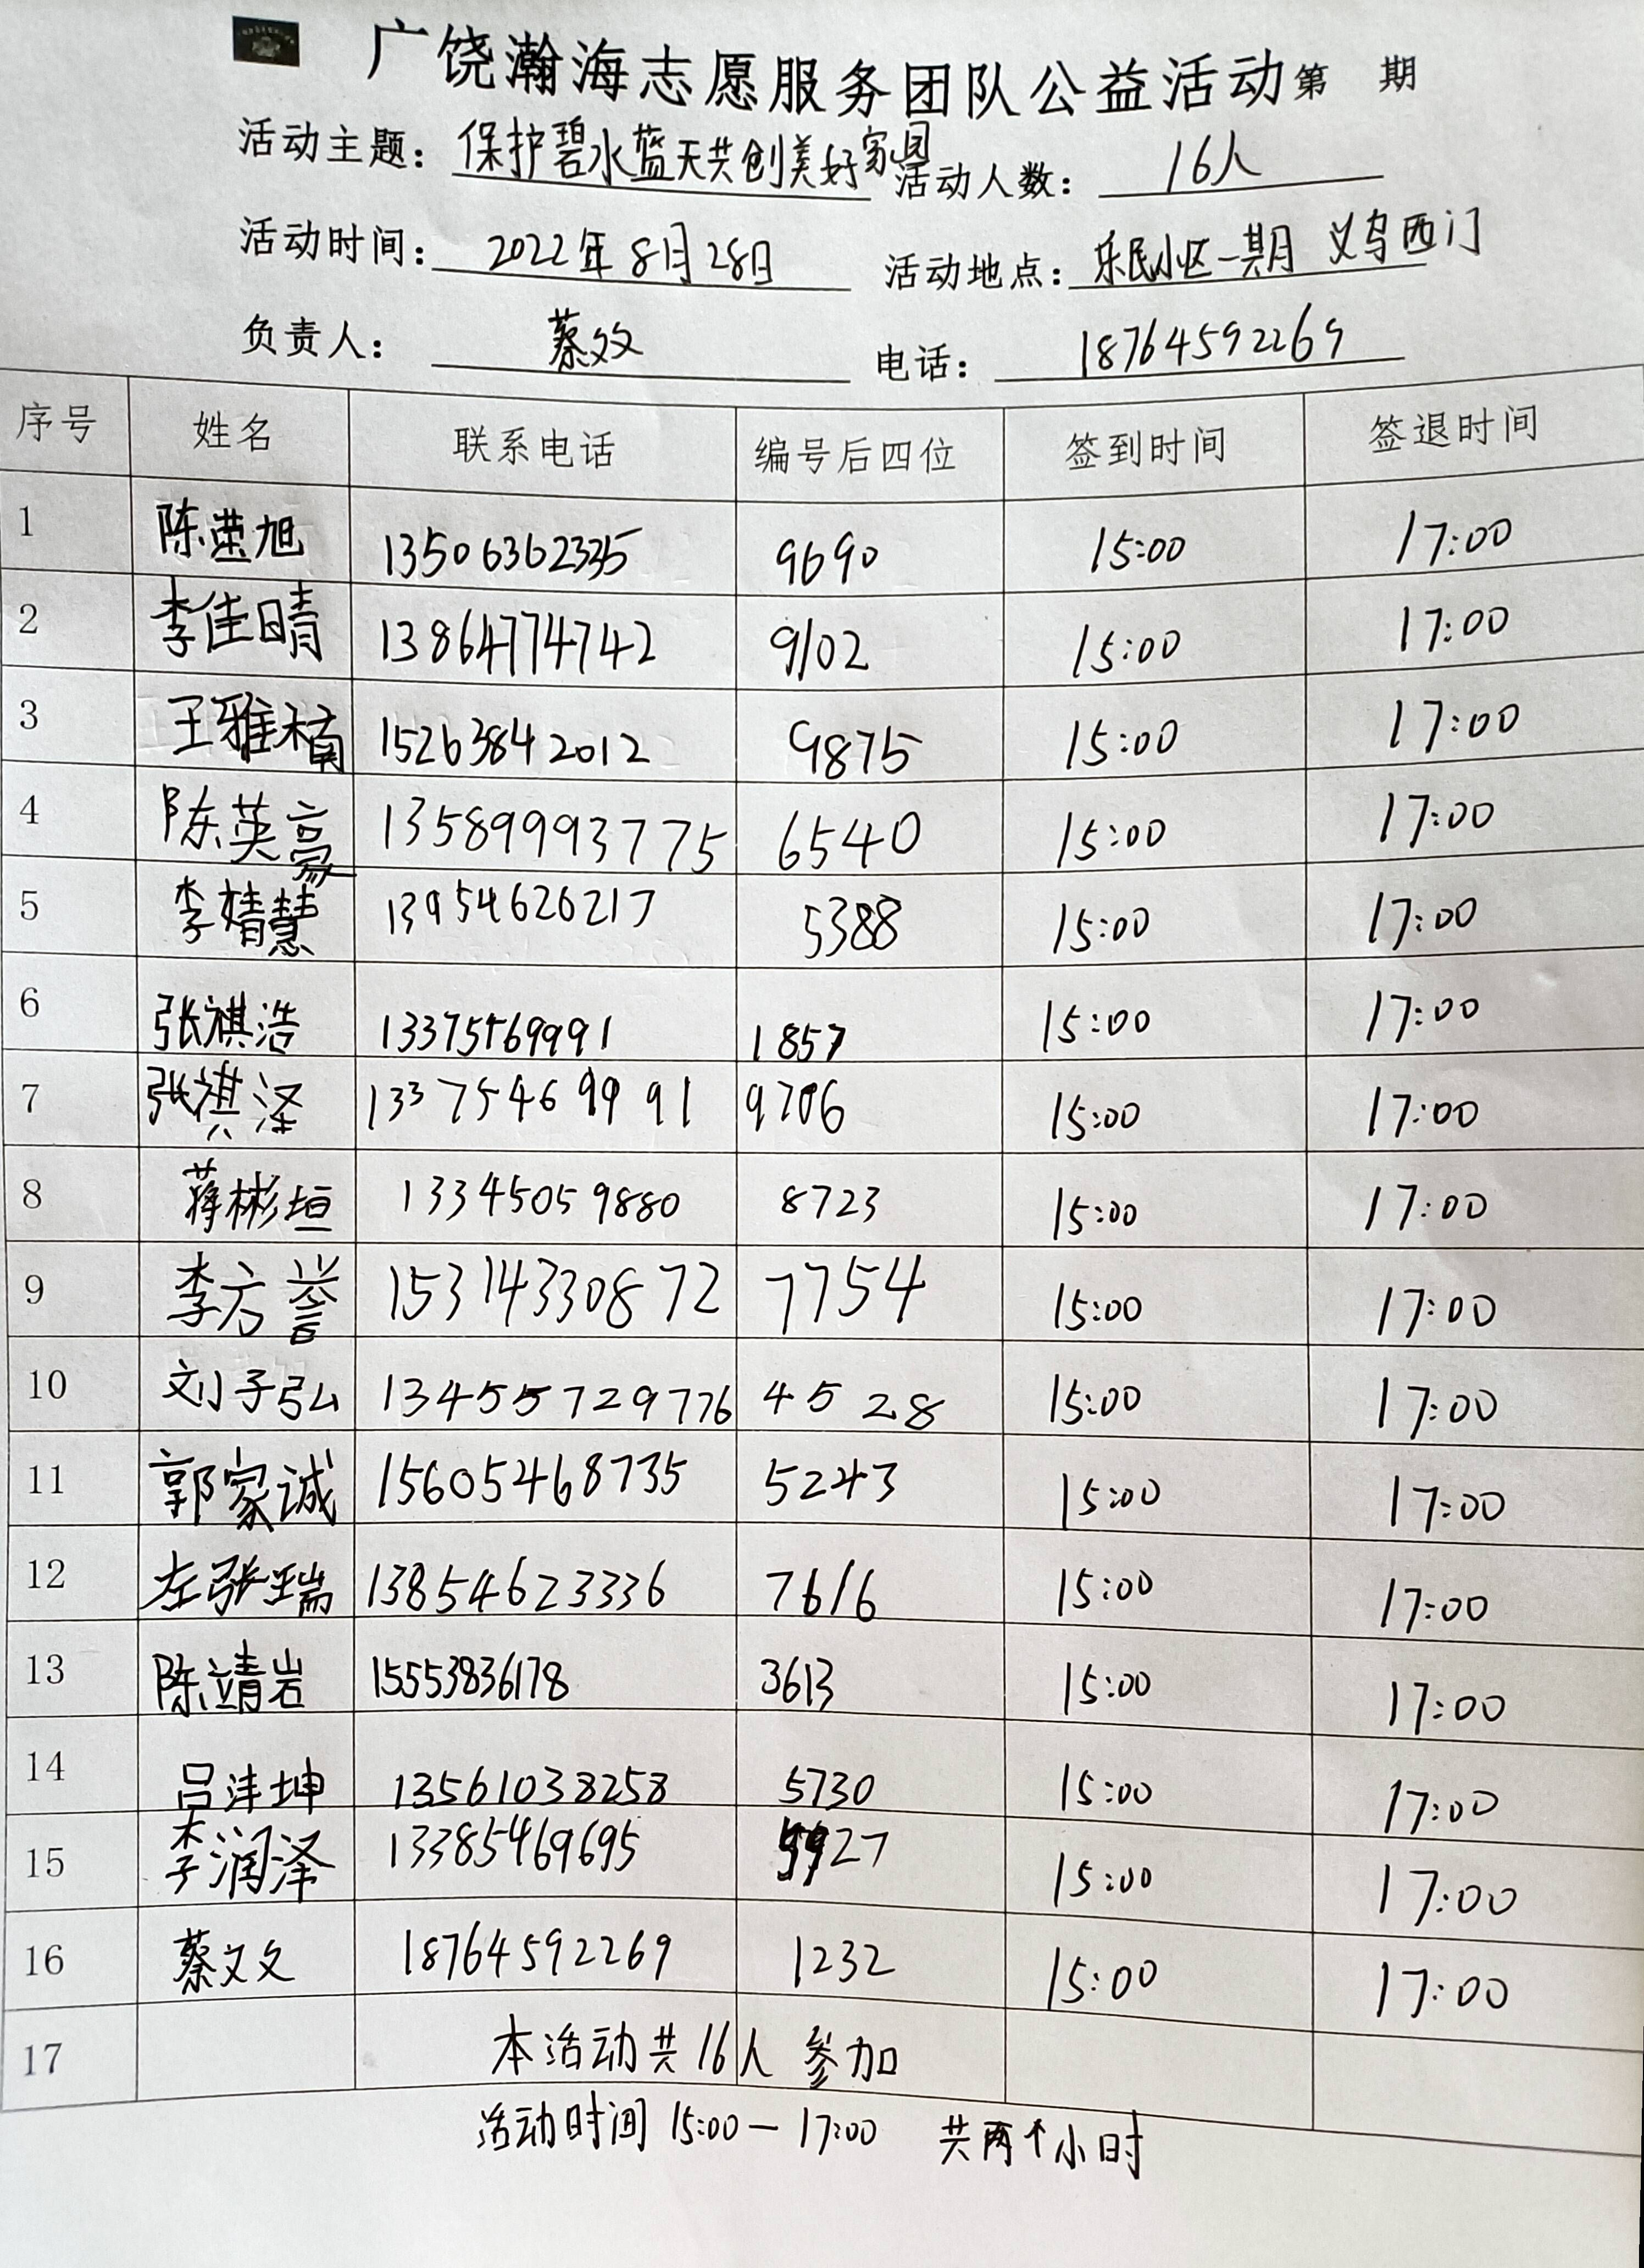 广饶瀚海志愿服务团队公益活动第 期
活动主题：保护碧水蓝天共创美好家园 活动人数：16人
活动时间：2022年8月28日 活动地点：乐民小区一期 义乌西门
负责人：蔡文文 电话：18764592269
序号 姓名 联系电话 编号后四位 签到时间 签退时间
1 陈莹旭 13506362335 9690 15:00 17:00
2 李佳晴 13864774742 9102 15:00 17:00
3 王雅楠 15263842012 9875 15:00 17:00
4 陈英豪 13589993775 6540 15:00 17:00
5 李婧慧 13954626217 5388 15:00 17:00
6 张祺浩 13375469991 1857 15:00 17:00
7 张祺泽 13375469991 9706 15:00 17:00
8 蒋彬垣 13345059880 8723 15:00 17:00
9 李方誉 15314330872 7754 15:00 17:00
10 刘子弘 134555729776 4528 15:00 17:00
11 郭家诚 15605468735 5243 15:00 17:00
12 左张瑞 13854623336 7616 15:00 17:00
13 陈靖岩 15553836178 3613 15:00 17:00
14 吕沣坤 13561038258 5730 15:00 17:00
15 李润泽 13385469695 5927 15:00 17:00
16 蔡文文 18764592269 1232 15:00 17:00
17 本活动共16人 参加
活动时间 15:00—17:00 共两个小时